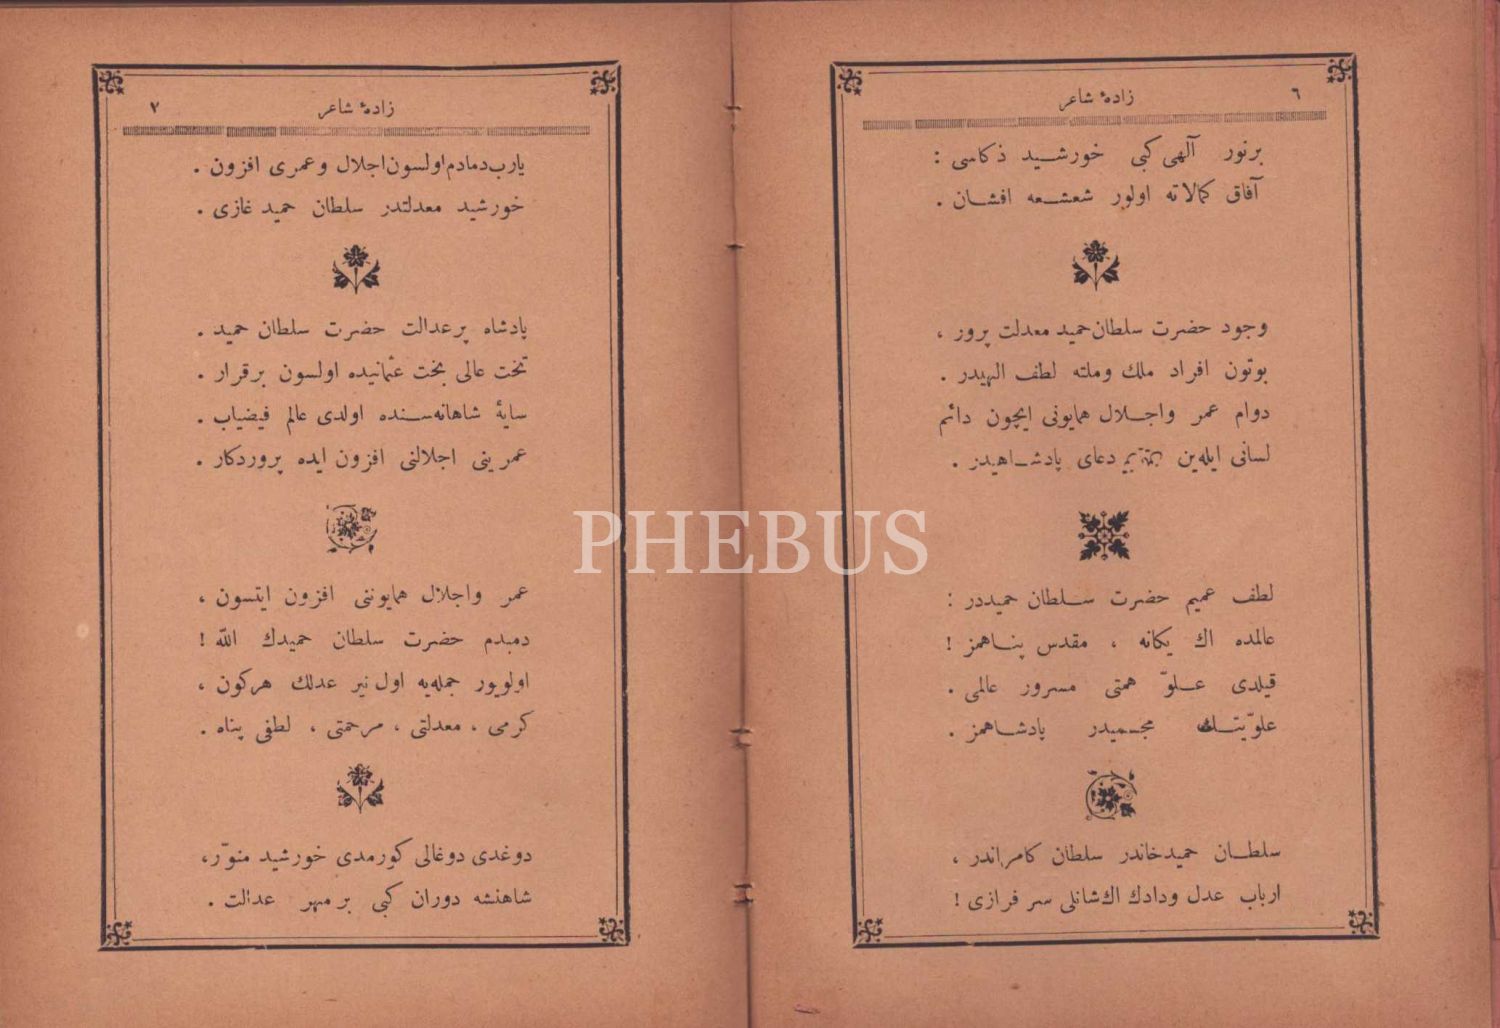 زادهٔ شاعر ٦
برنور آلهی كبی خورشـید ذكاسی :
آفاق كمالاته اولور شعشـعه افشـان .
وجود حضرت سلطان حمید معدلت پرور ،
بوتون افراد ملك وملته لطف الهیدر .
دوام عمر واجـلال همایونی ایچون دائم
لسانی ایله‌ین دعای پادشـاهیدر .
لطف عمیم حضرت سـلطان حمیددر :
عالمده اك یكانه ، مقدس پنـاهمز !
قیلدی عـلوّ همتی مسرور عالمی .
علویّتـك مجسمیدر پادشـاهمز .
سلطـان حمید خاندر سلطان كامراندر ،
ارباب عدل ودادك اك شانلی سر فرازی !
زادهٔ شاعر ٧
یارب دمادم اولسون اجلال وعمری افزون .
خورشید معدلتدر سلطان حمید غازی .
پادشاه پر عدالت حضرت سلطان حمید .
تخت عالی بخت عثمانیده اولسون برقرار .
سایهٔ شاهانه‌سنده اولدی عالم فیضیاب .
عمرینی اجلالنی افزون ایده پروردكار .
عمر واجلال همایوننی افزون ایتسون ،
دمبدم حضرت سلطان حمیدك اللّٰه !
اولویور جمله‌یه اول نیر عدلك هركون ،
كرمی ، معدلتی ، مرحمتی ، لطفی پناه .
دوغدی دوغالی كورمدی خورشید منوّر ،
شاهنشه دوران كبی بر مهر عدالت .
PHEBUS